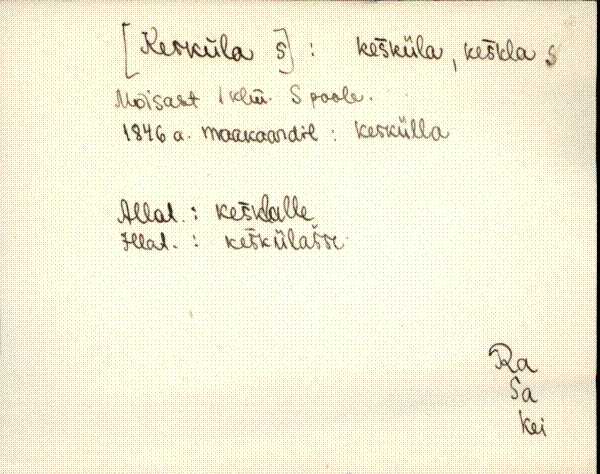 [Kesküla s] : keškülа, keškla s
Mõisast 1 klm. S poole.
1846 a. maakaardil : keskülla
Allat. : keškalle
Illat. : keškülašse
Ra
Sa
kei